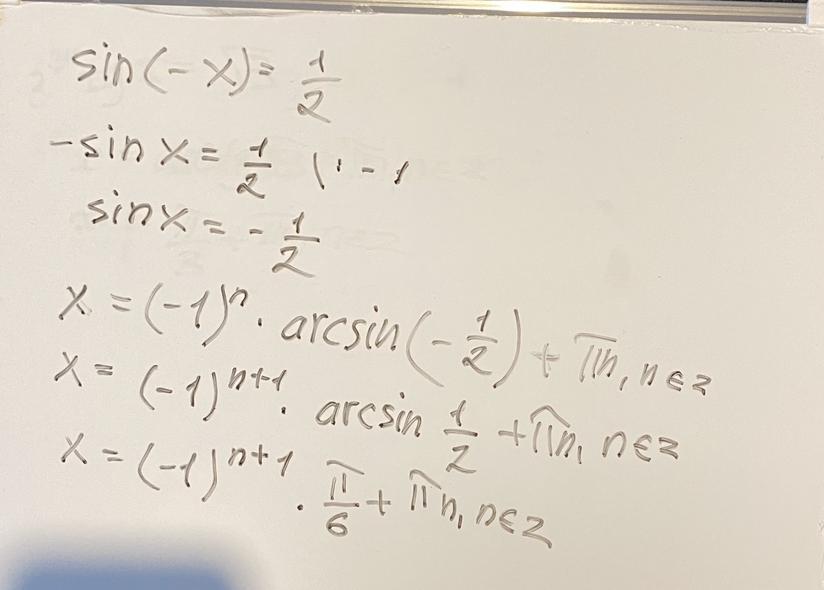 sin(-x)= 1/2
-sin x = 1/2 |:-1
sinx = - 1/2
x = (-1)ⁿ · arcsin(-1/2) + πn, n∈z
x = (-1)ⁿ⁺¹ · arcsin 1/2 + πn, n∈z
x = (-1)ⁿ⁺¹ · π/6 + πn, n∈z